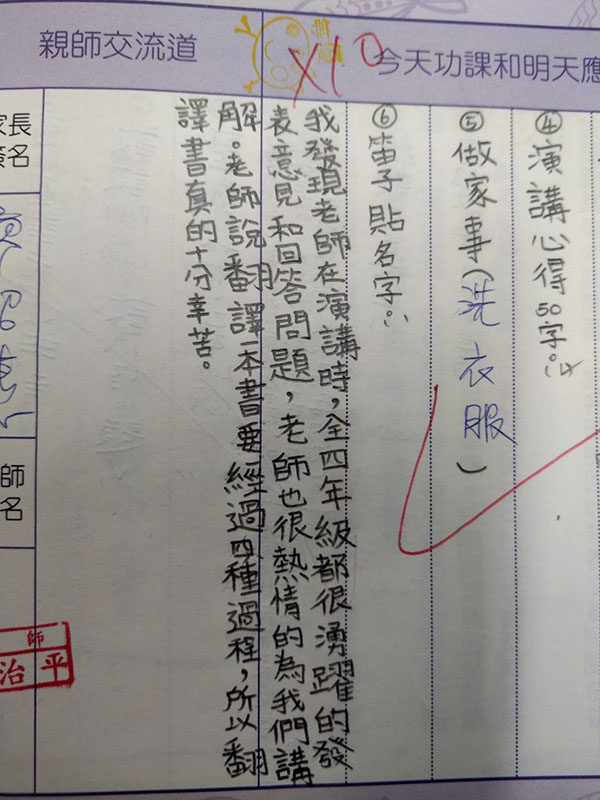 今天功課和明天應
④演講心得50字
⑤做家事(洗衣服)
⑥笛子貼名字
我發現老師在演講時,全四年級都很湧躍的發
表意見和回答問題,老師也很熱情的為我們講
解。老師說翻譯一本書要經過四種過程,所以翻
譯書真的十分幸苦。
親師交流道
X10
家長
簽名
師
名
師
治平